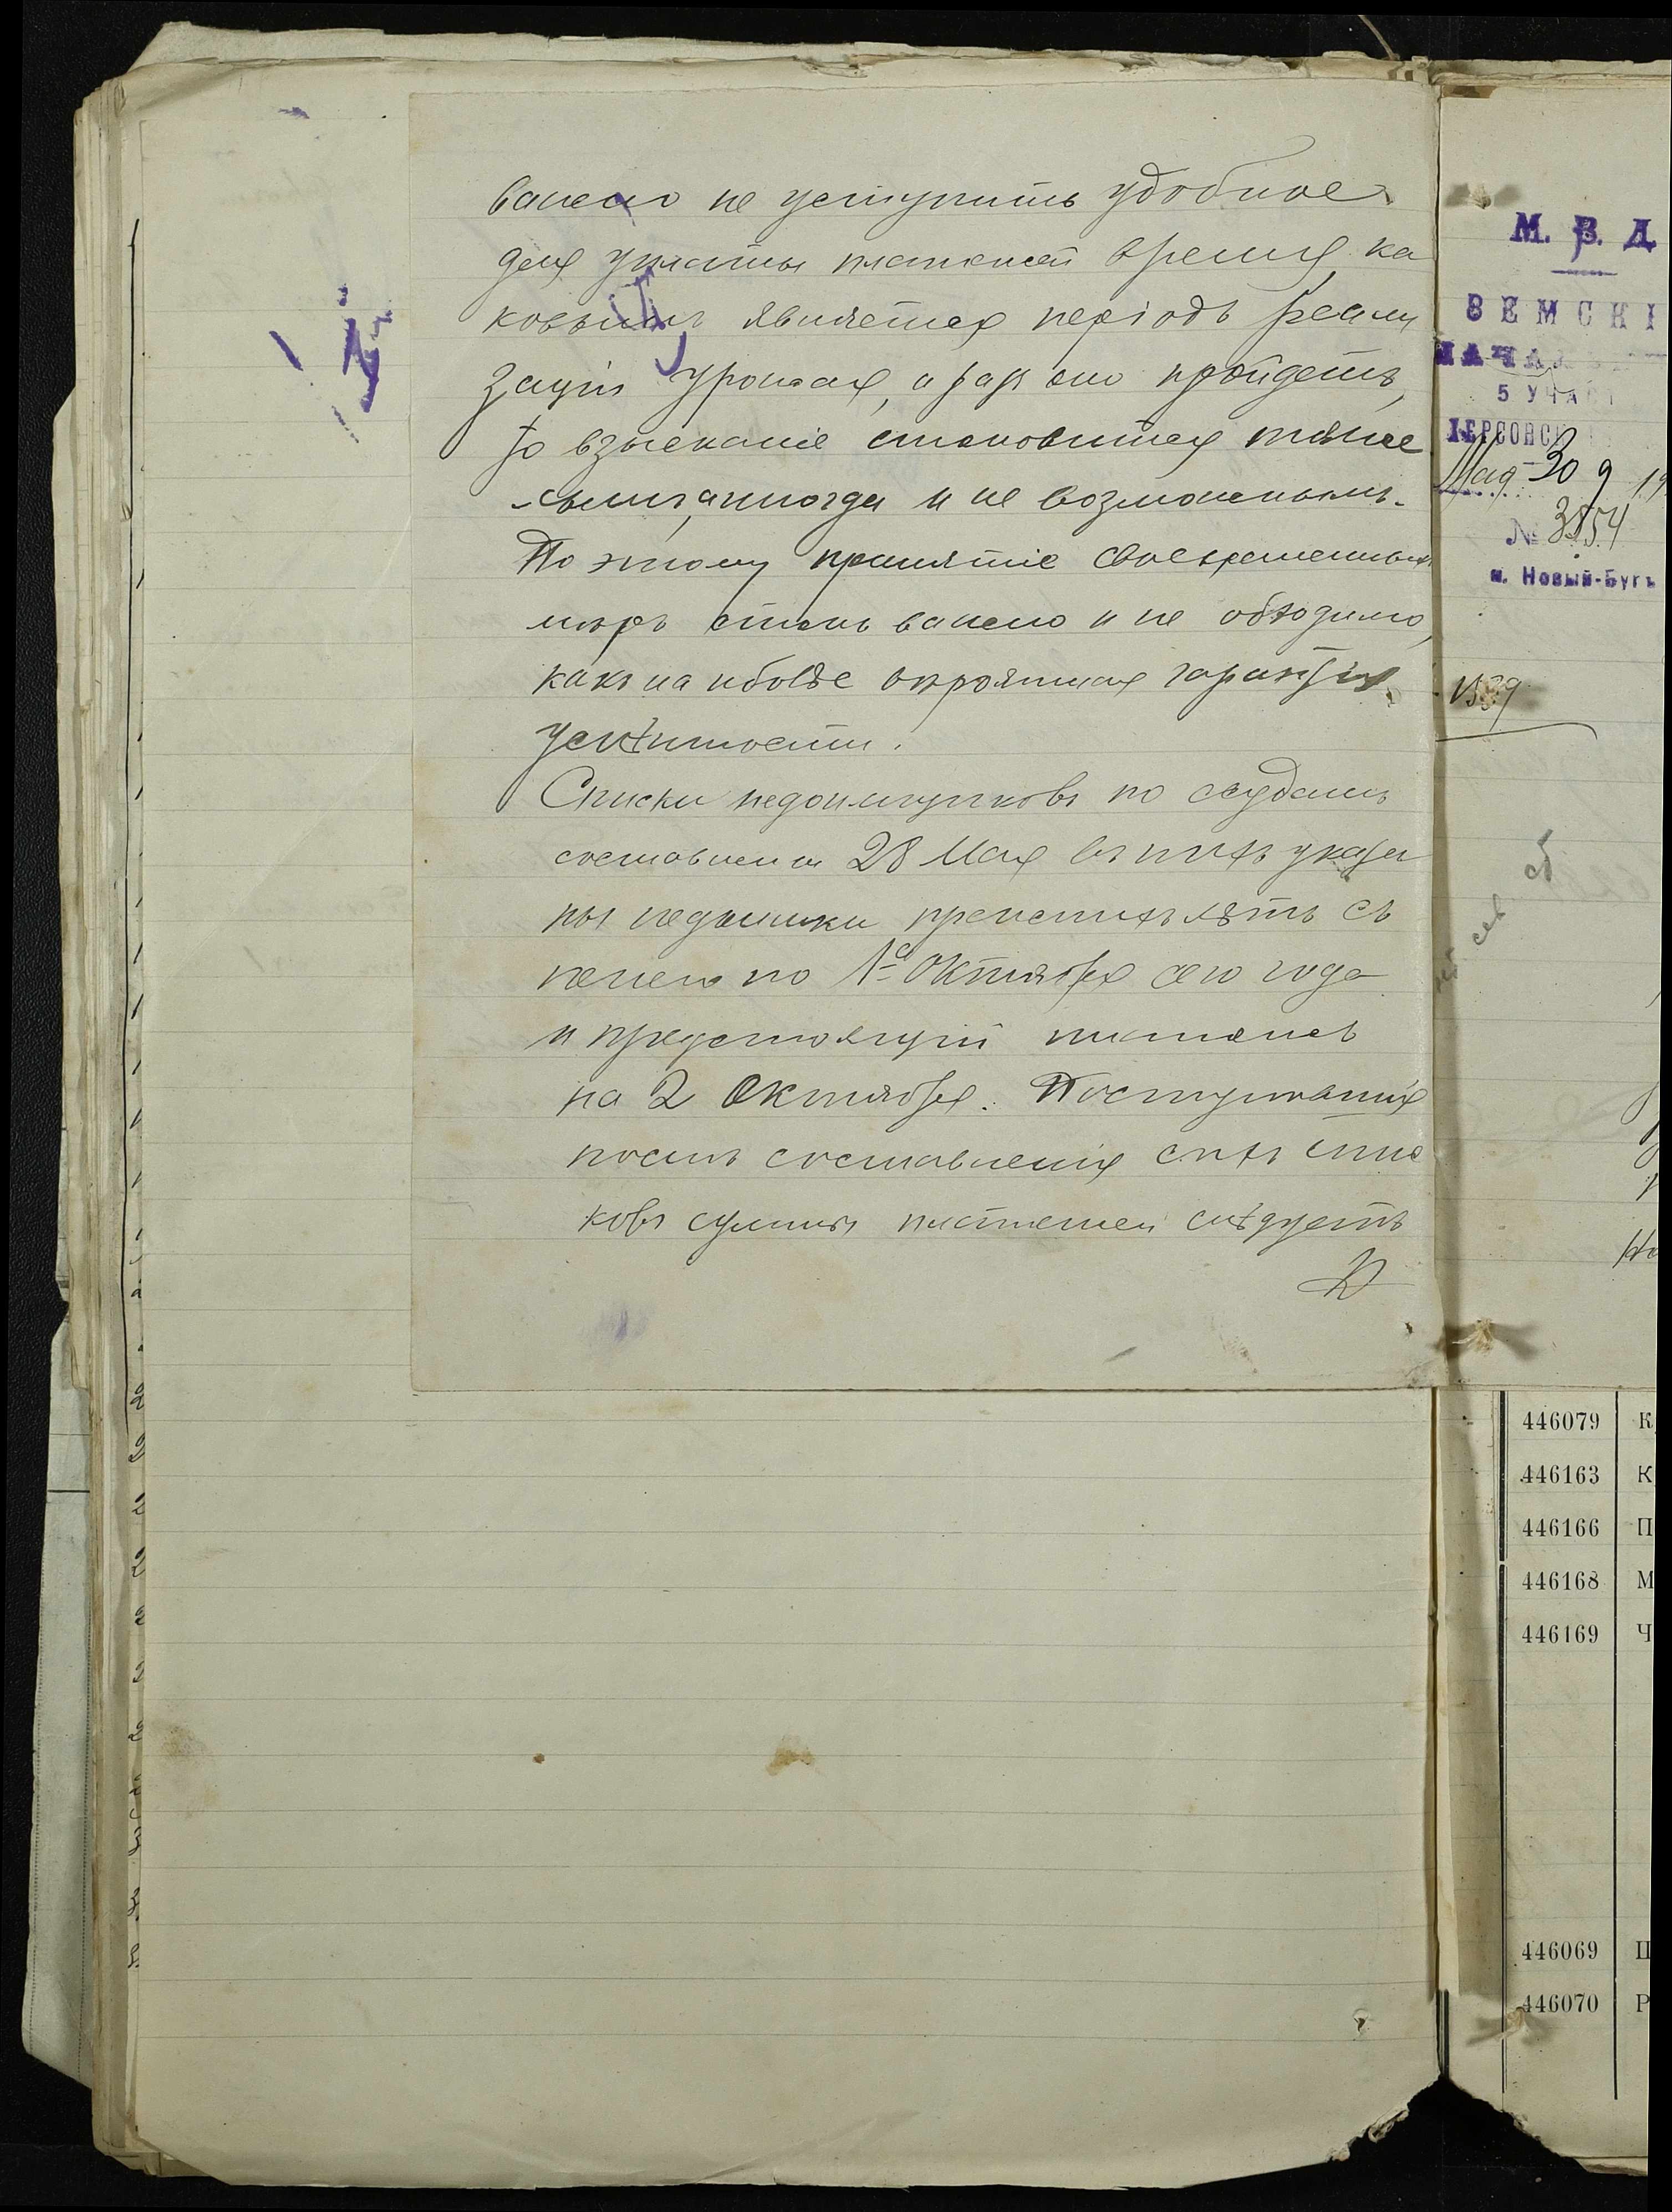 важно не уступить удобное
для уплаты платежей время, ка
ковымъ является періодъ реали
заціи урожая, а разъ оно пройдетъ,
то взысканіе становится тяже
лымъ, а иногда и не возможнымъ.
По этому принятіе своевременныхъ
мѣръ столь важно и не обходимо,
какъ на иболѣе вѣроятная гарантія
успѣшности.
Списки недоимщиковъ по ссудамъ
составлены 28 Мая въ нихъ указа
ны недоимки прежнихъ лѣтъ съ
пенею по 1е Октября сего года
и предстоящій платежъ
на 2 Октября. Поступившія
послѣ составленія сихъ спис
ковъ суммы платежей слѣдуетъ
М. В. Д
ЗЕМСКІ
НАЧАЛ
5 УЧАС
ХЕРСОНС
Мая 30 9 19
№ 3854
м. Новый-Бугъ
446079 К
446163 К
446166 П
446168 М
446169 Ч
446069 П
446070 Р